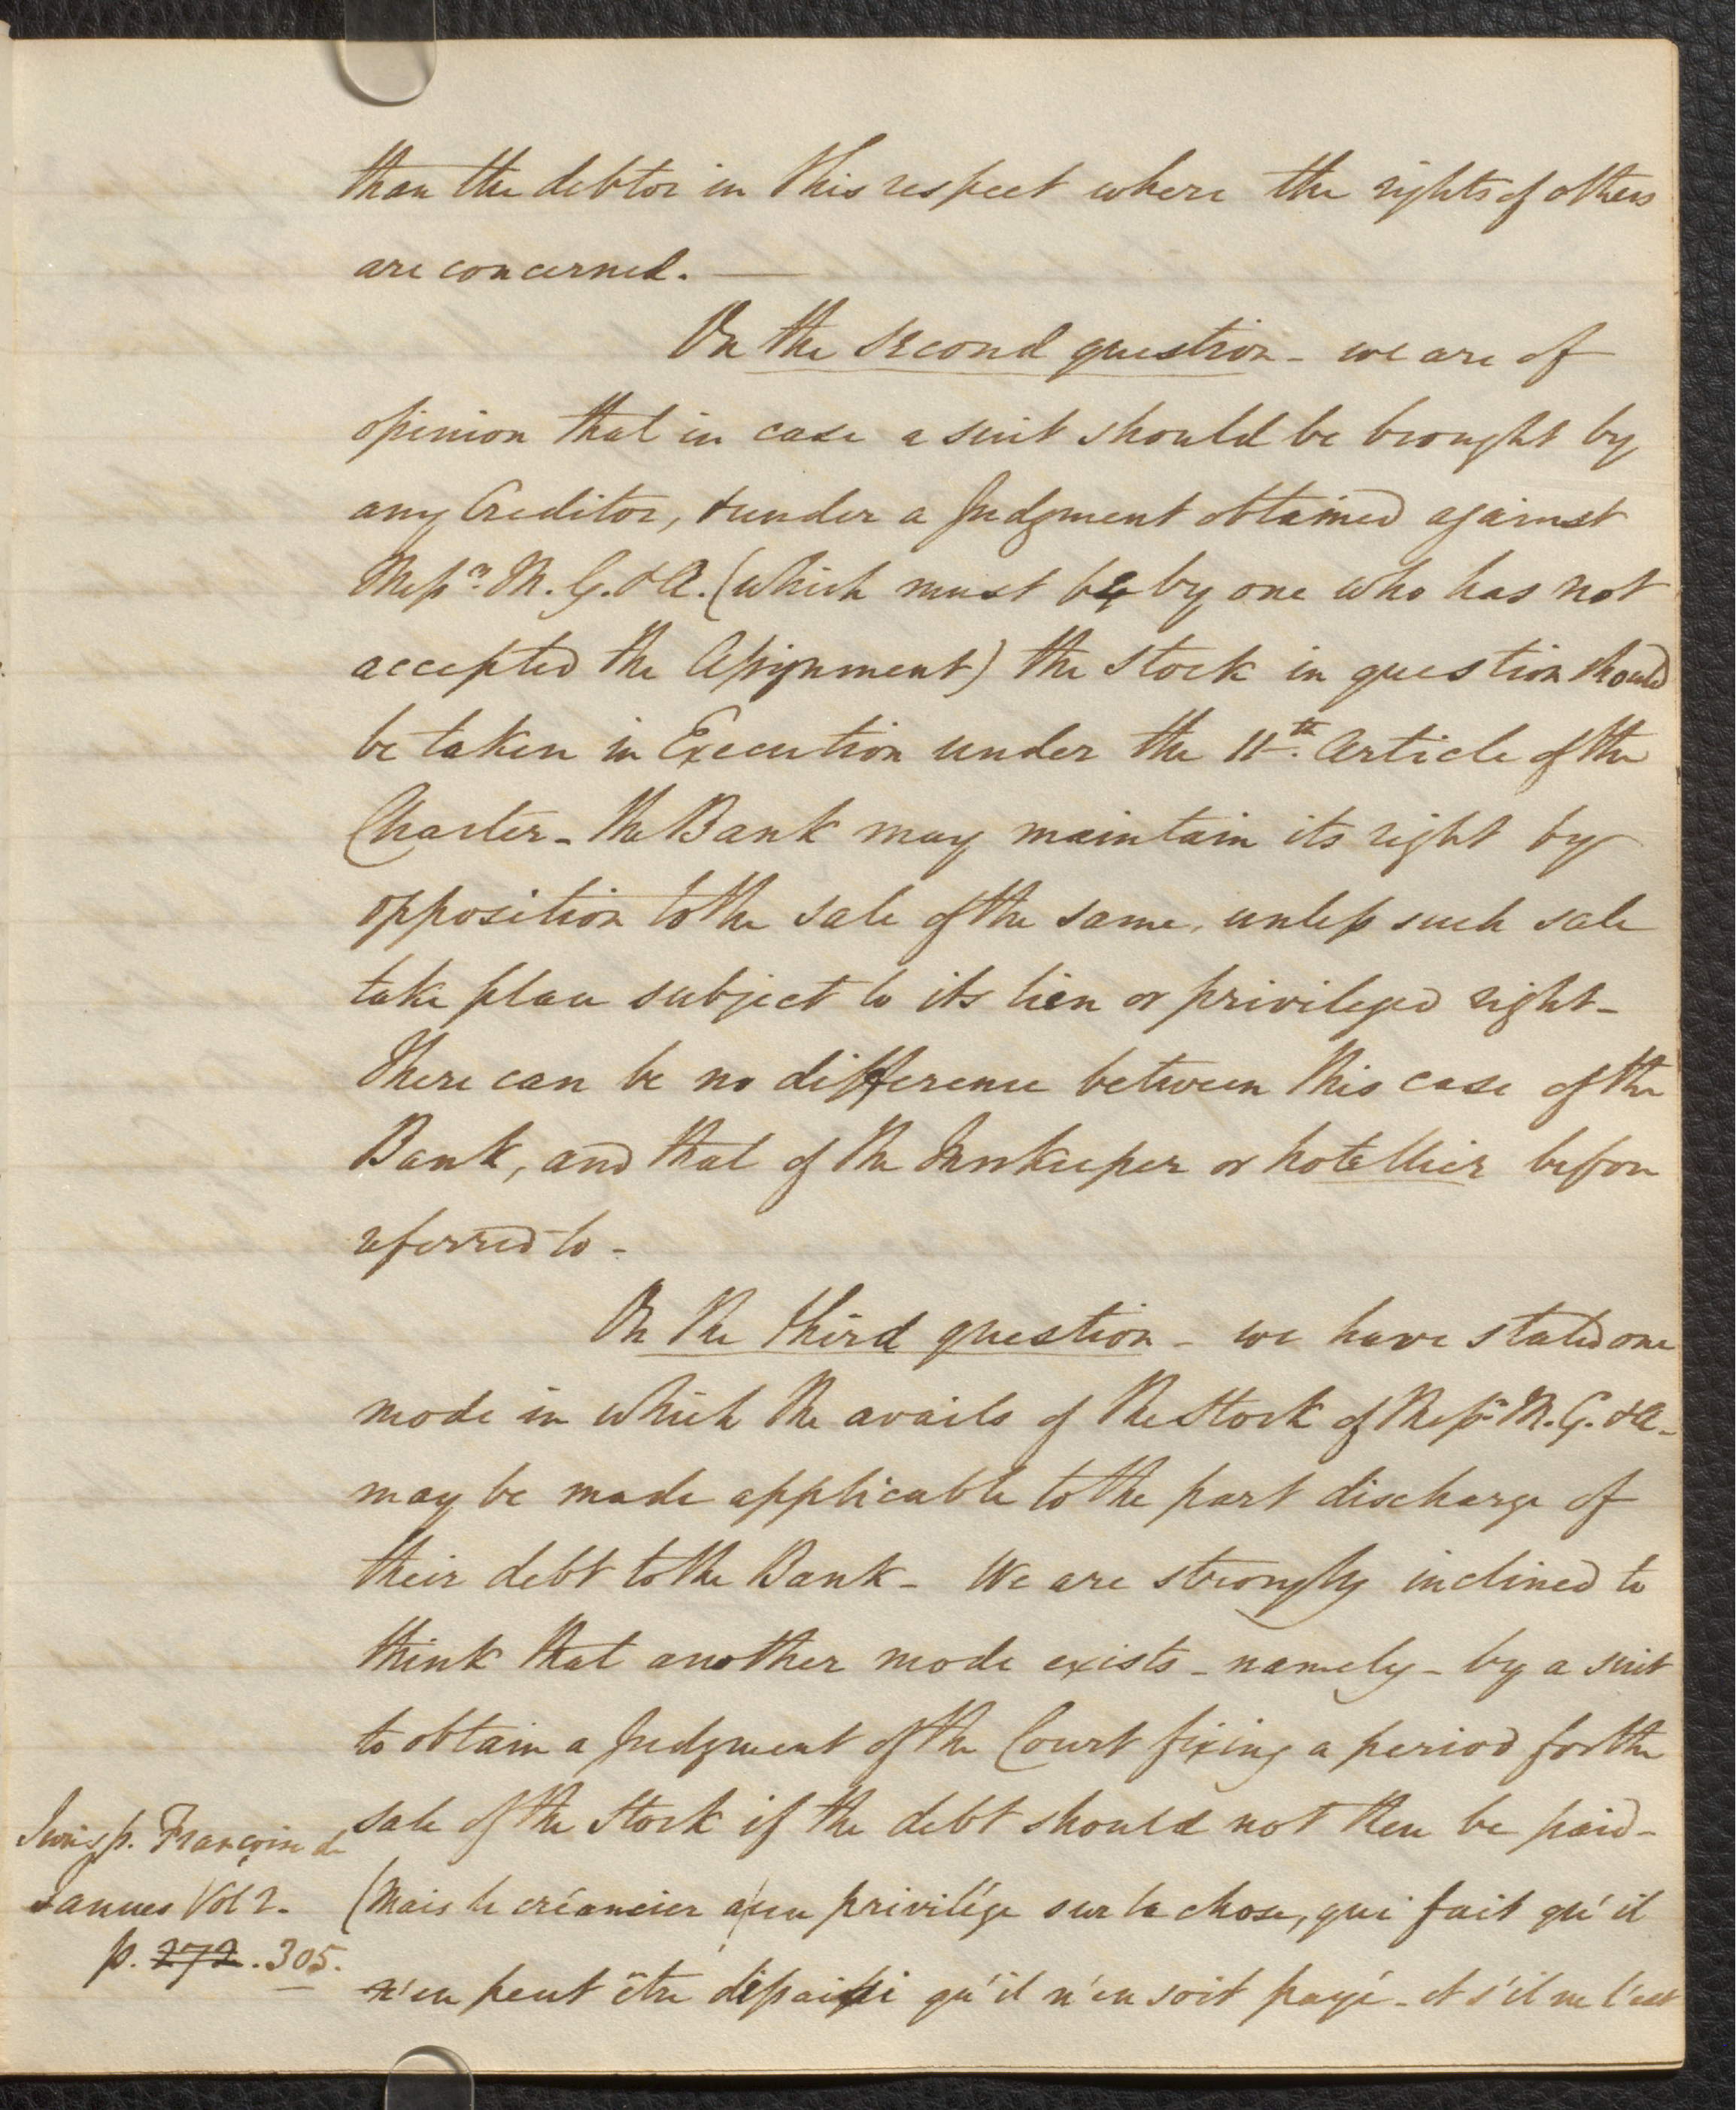 than the debtor in this respect where the rights of others
are concerned. —
On the second question - we are of
opinion that in case a suit should be brought by
any Creditor, & under a Judgment obtained against
Mess.rs M. G. & A. (which must be by one who has not
accepted the Assignment) the stock in question should
be taken in Execution under the 11th. Article of the
Charter - the Bank may maintain its right by
opposition to the sale of the same, unless such sale
take place subject to its lien or privileged right -
There can be no difference between this case of the
Bank, and that of the Innkeeper or hotellier before
referred to -
On the third question - we have stated one
mode in which the avails of the Stock of Mess.rs M. G. & A -
may be made applicable to the part discharge of
their debt to the Bank - We are strongly inclined to
think that another mode exists - namely - by a suit
to obtain a Judgment of the Court fixing a period for the
sale of the Stock if the debt should not then be paid -
(Mais le créancier a un privilége sur la chose, qui fait qu'il
n'en peut être dessaissi qu'il n'en soit payé - et s'il ne l'est
Jurisp. Françoise de
Vol 2.
p. 272 . 305.